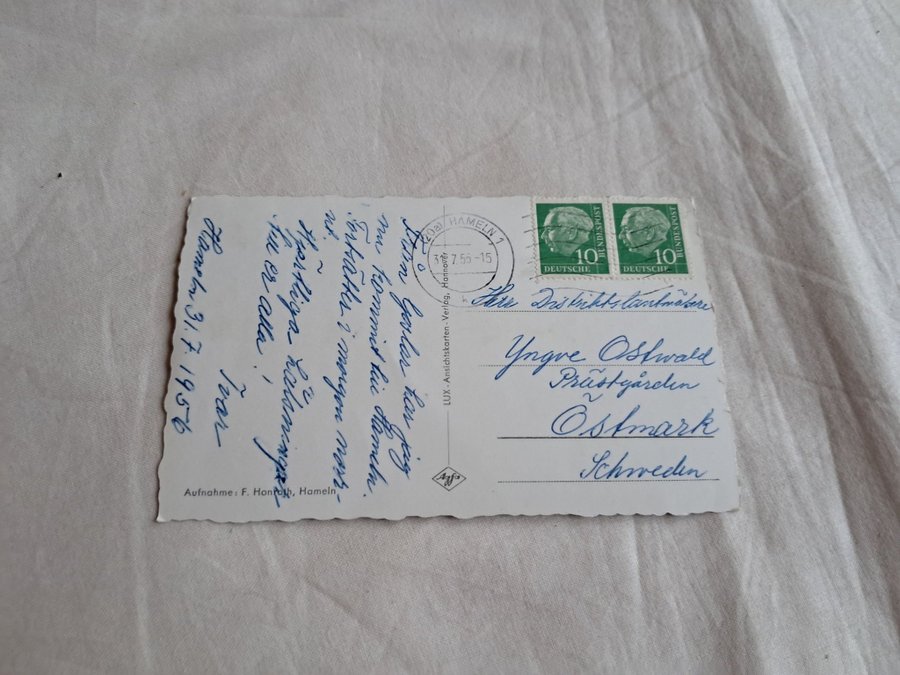 Från Goslar har jag
nu kommit till Hameln.
i morgon
Hjärtliga hälsningar
till er alla!
Ivar
Hameln 31.7.1956
Aufnahme: F. Hanrath, Hameln
LUX-Ansichtskarten-Verlag, Hannover
Agfa
(20a) HAMELN 1
7.56-15
10
DEUTSCHE
BUNDESPOST
10
DEUTSCHE
BUNDESPOST
Herr Distriktslantmätare
Yngve Ostwald
Prästgården
Östmark
Schweden